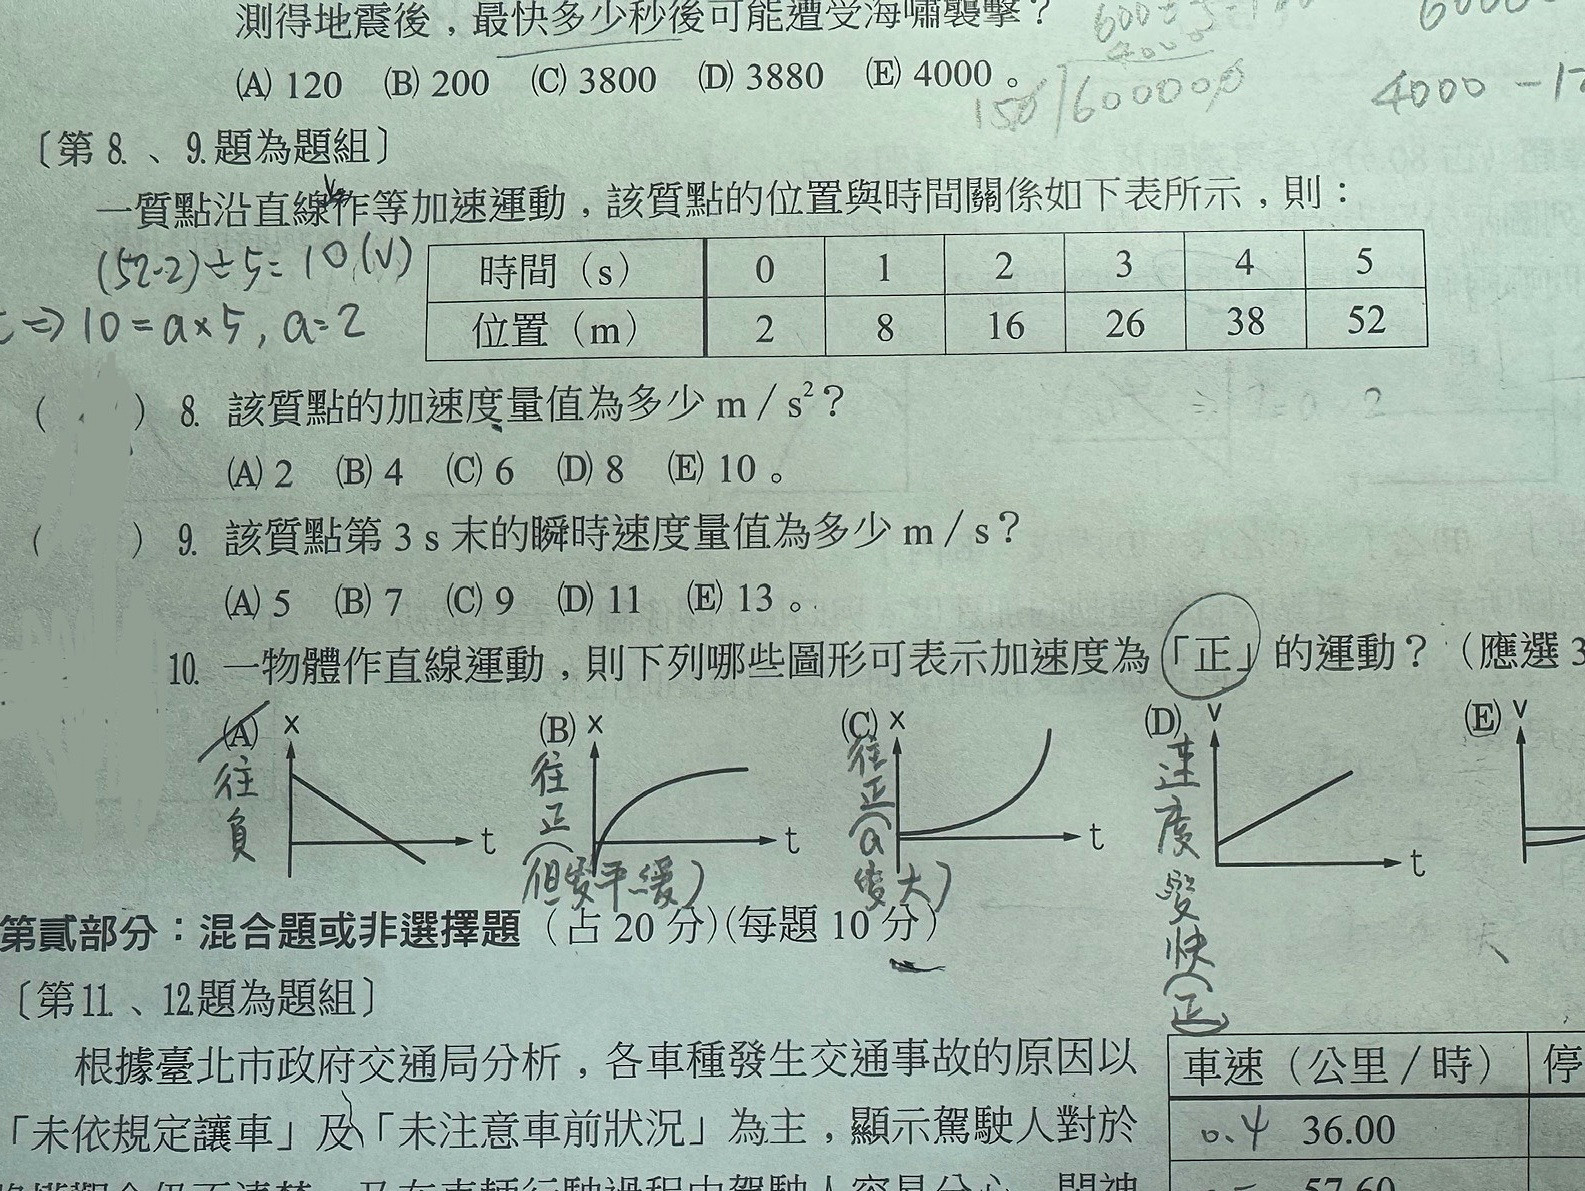 測得地震後，最快多少秒後可能遭受海嘯襲擊？
(A) 120 (B) 200 (C) 3800 (D) 3880 (E) 4000。
4000
150 600000
4000 -12
〔第8.、9.題為題組〕
一質點沿直線作等加速運動，該質點的位置與時間關係如下表所示，則：
(52-2)÷5=10(v)
⇒10=a×5, a=2
時間（s） 0 1 2 3 4 5
位置（m） 2 8 16 26 38 52
（ ）8. 該質點的加速度量值為多少 m／s²？
(A) 2 (B) 4 (C) 6 (D) 8 (E) 10。
（ ）9. 該質點第 3 s 末的瞬時速度量值為多少 m／s？
(A) 5 (B) 7 (C) 9 (D) 11 (E) 13。
10. 一物體作直線運動，則下列哪些圖形可表示加速度為「正」的運動？（應選3
(A) x t 往負
(B) x t 往正(但變平緩)
(C) x t 往正(a變大)
(D) v t 速度變快(正)
(E) v
第貳部分：混合題或非選擇題（占 20 分）（每題 10 分）
〔第11.、12.題為題組〕
根據臺北市政府交通局分析，各車種發生交通事故的原因以
「未依規定讓車」及「未注意車前狀況」為主，顯示駕駛人對於
車速（公里／時） 停
0.4 36.00
57.60